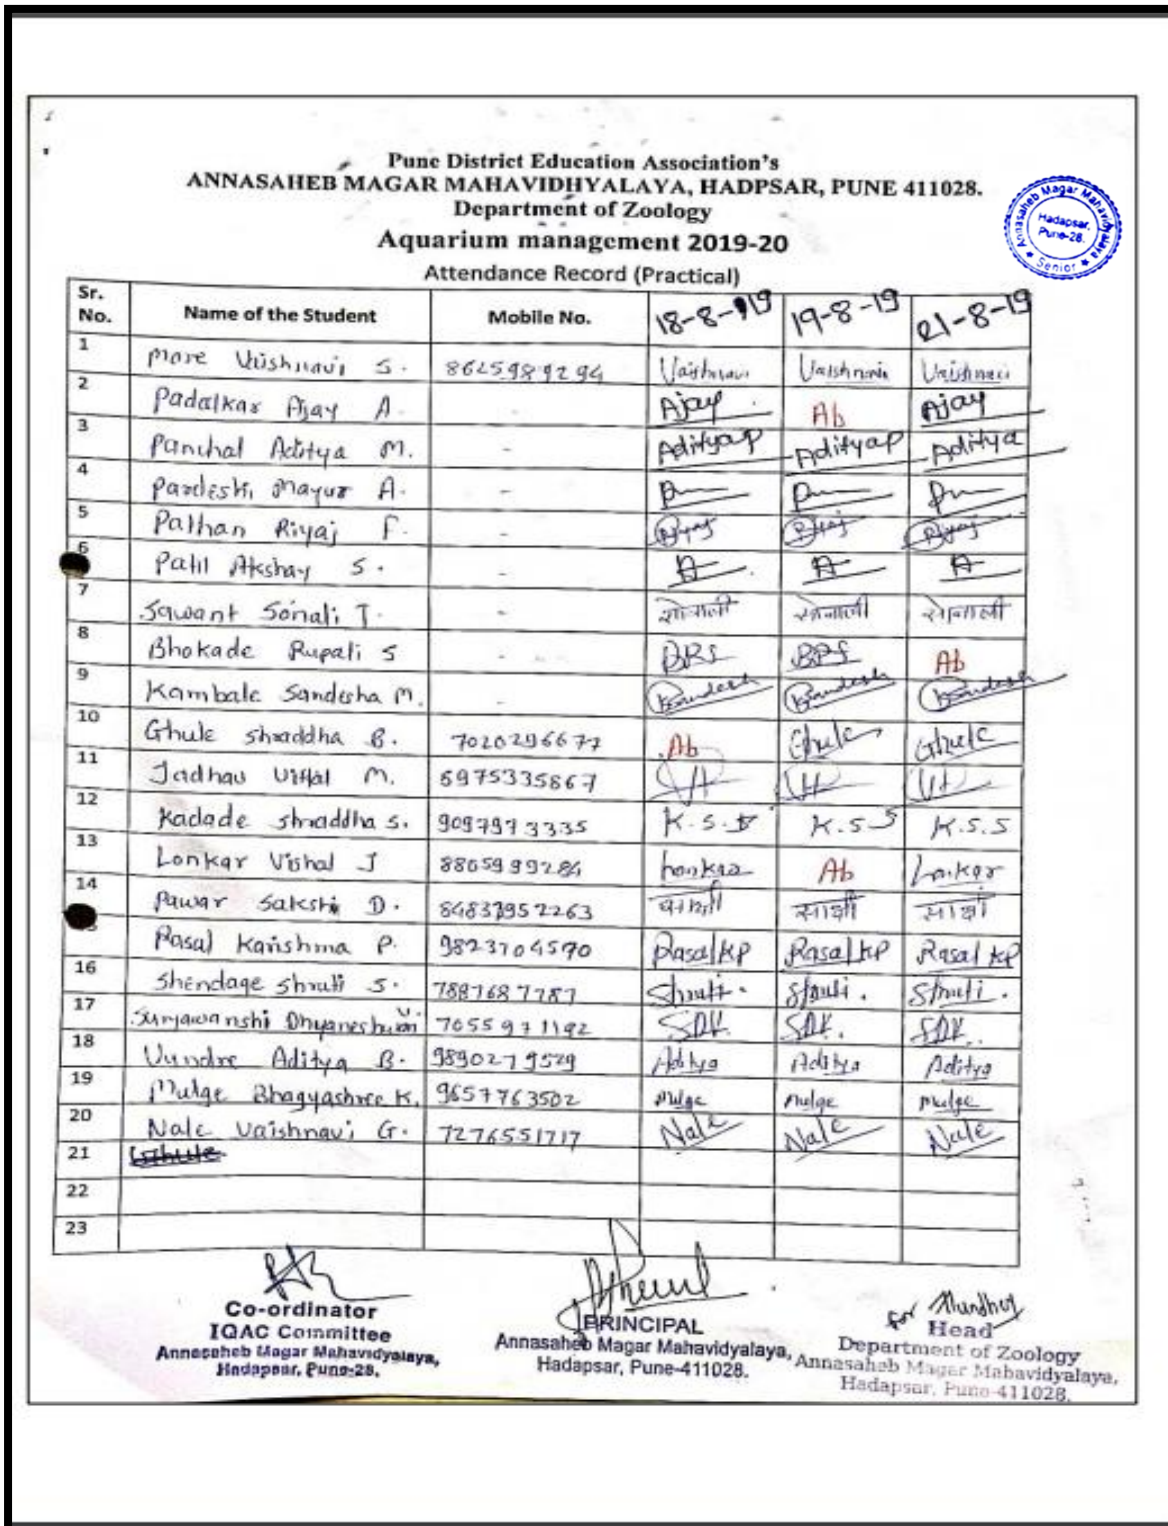 Pune District Education Association's
ANNASAHEB MAGAR MAHAVIDHYALAYA, HADPSAR, PUNE 411028.
Department of Zoology
Aquarium management 2019-20
Attendance Record (Practical)
Annasaheb Magar Mahavidyalaya
Hadapsar, Pune-28.
★ Senior ★
Sr. No. Name of the Student Mobile No. 18-8-19 19-8-19 21-8-19
1 More Vaishnavi S. 8625989294 Vaishnavi Vaishnavi Vaishnavi
2 Padalkar Ajay A. - Ajay Ab Ajay
3 Panchal Aditya M. - AdityaP AdityaP Aditya
4 Pardeshi Mayur A. -
5 Pathan Riyaj F. - Riyaj Riyaj Riyaj
6 Patil Akshay S. - A A A
7 Sawant Sonali T. - सोनाली सोनाली सोनाली
8 Bhokade Rupali S - BRS BRS Ab
9 Kambale Sandesha M. -
10 Ghule Shraddha B. 7020296677 Ab Ghule Ghule
11 Jadhav Vitthal M. 5975335867
12 Kadade Shraddha S. 9097973335 K.S.S K.S.S K.S.S
13 Lonkar Vishal J 8805999284 Lonkar Ab Lonkar
14 Pawar Sakshi D. 84837952263 साक्षी साक्षी साक्षी
Rasal Karishma P. 9823704590 RasalKP RasalKP Rasal KP
16 Shendage Shruti S. 7887687787 Shruti. Shruti. Shruti.
17 Suryawanshi V. 7055971192 SDK. SDK. SDK.
18 Vundre Aditya B. 9890279529 Aditya Aditya Aditya
19 Mulge Bhagyashree K. 9657763502 Mulge Mulge Mulge
20 Nale Vaishnavi G. 7276551717 Nale Nale Nale
21 Ghule
22
23
Co-ordinator
IQAC Committee
Annasaheb Magar Mahavidyalaya,
Hadapsar, Pune-28.
PRINCIPAL
Annasaheb Magar Mahavidyalaya,
Hadapsar, Pune-411028.
for
Head
Department of Zoology
Annasaheb Magar Mahavidyalaya,
Hadapsar, Pune-411028.